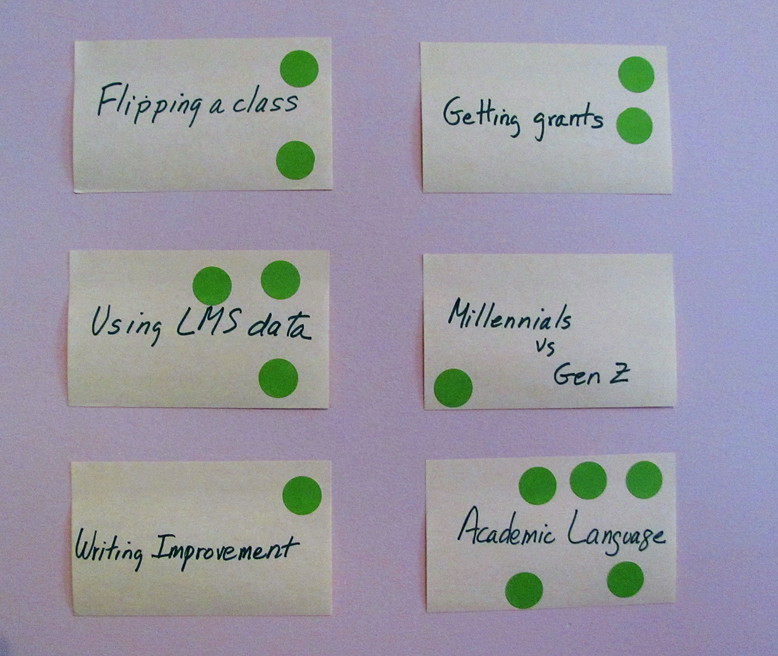 Flipping a class
Getting grants
Using LMS data
Millennials
vs
Gen Z
Writing Improvement
Academic Language